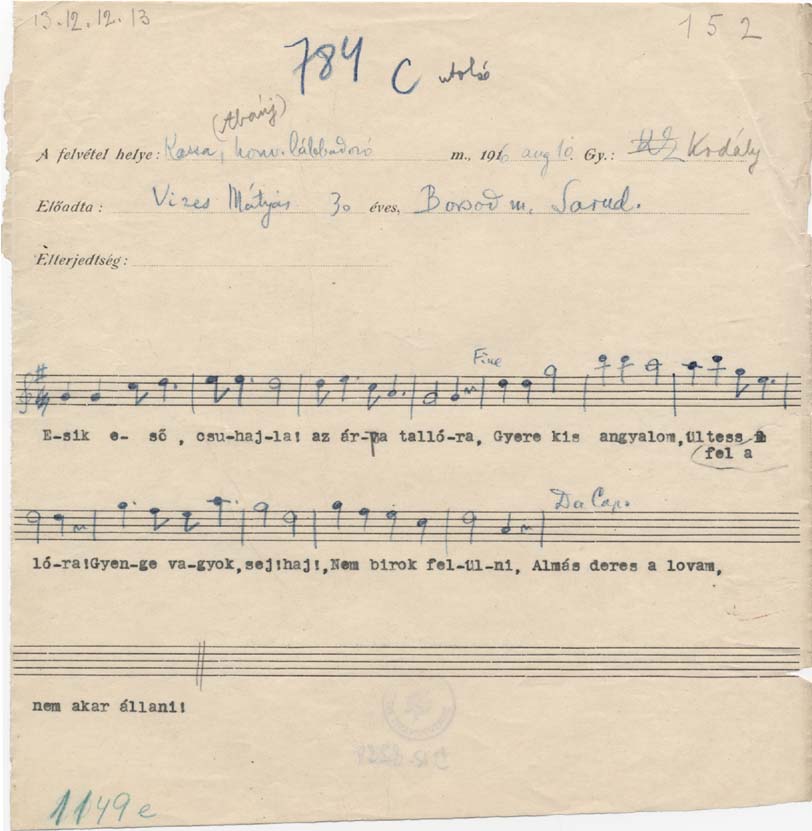 13.12.12.13
152
784 C utolsó
(Abaúj)
A felvétel helye: Kassa, honv. lábbadozó m., 1916 aug 10. Gy.: Kodály
Előadta: Vizes Mátyás 30 éves, Borsod m. Sarud.
Elterjedtség:
Fine
E-sik e- ső , csu-haj-la! az ár-va talló-ra, Gyere kis angyalom, ültess
fel a
Da Cap.
ló-ra!Gyen-ge va-gyok,sej!haj!,Nem birok fel-ül-ni, Almás deres a lovam,
nem akar állani!
1149e